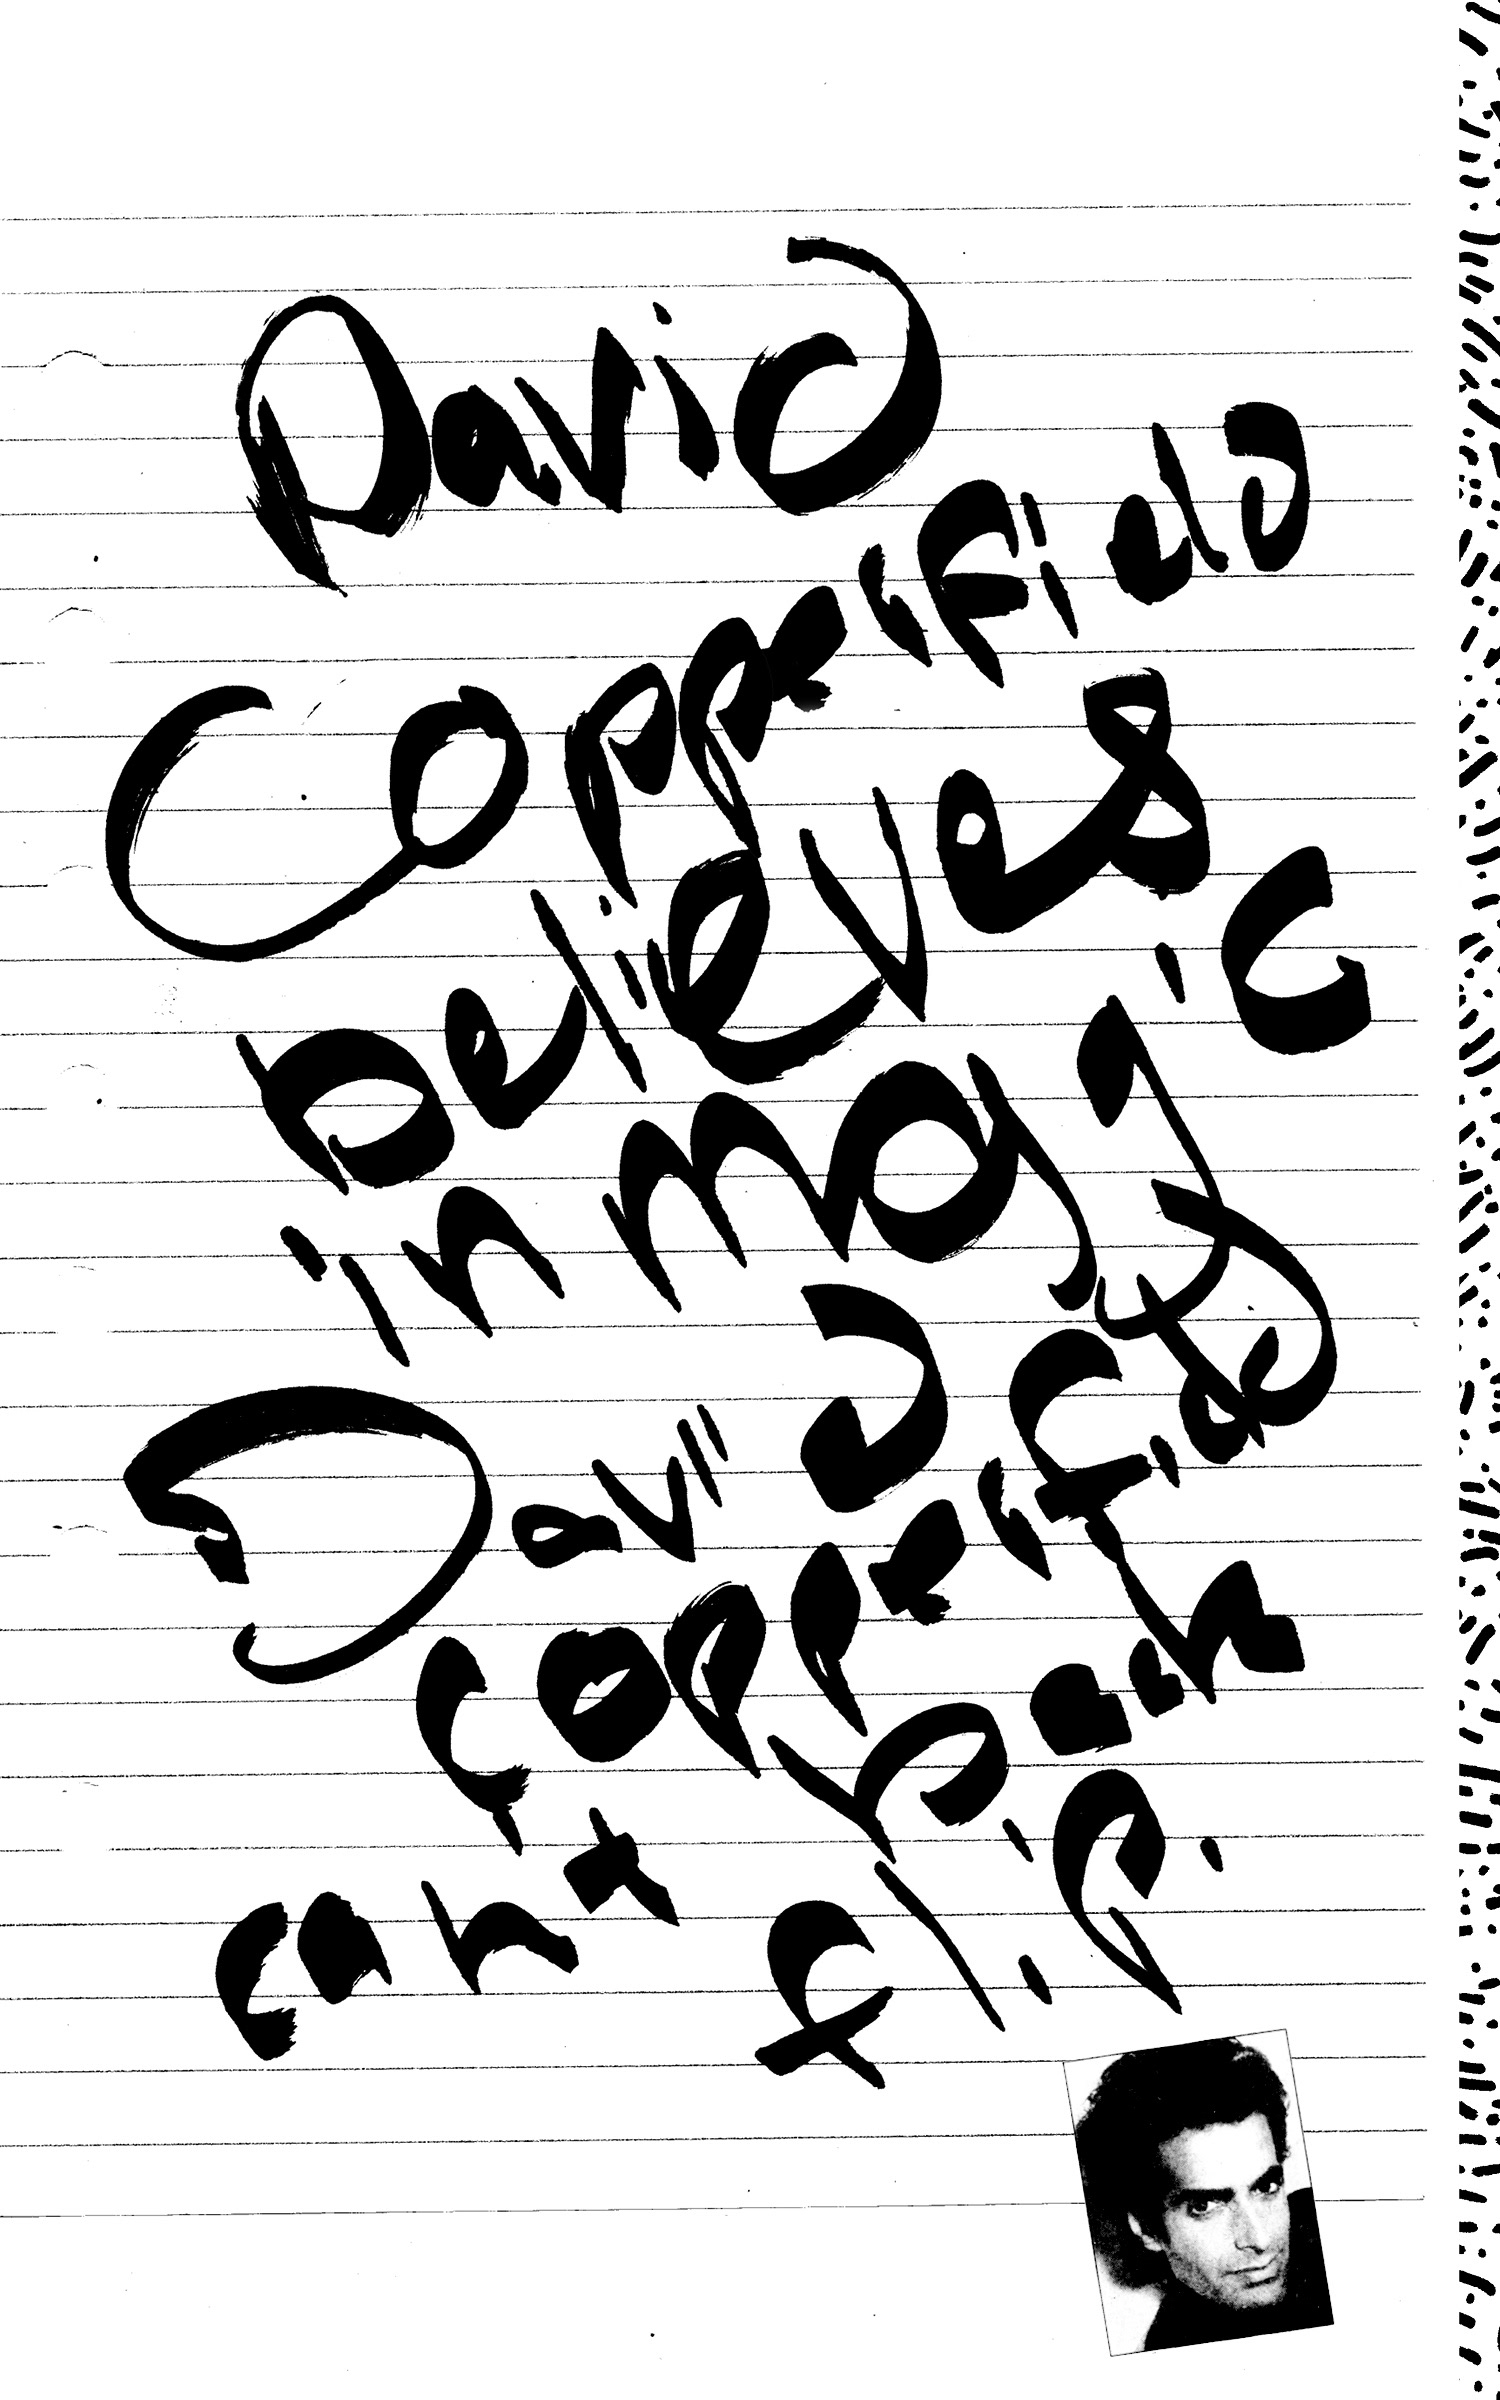 David
Copperfield
believes
in magic
David
copperfield
cant back
flip.